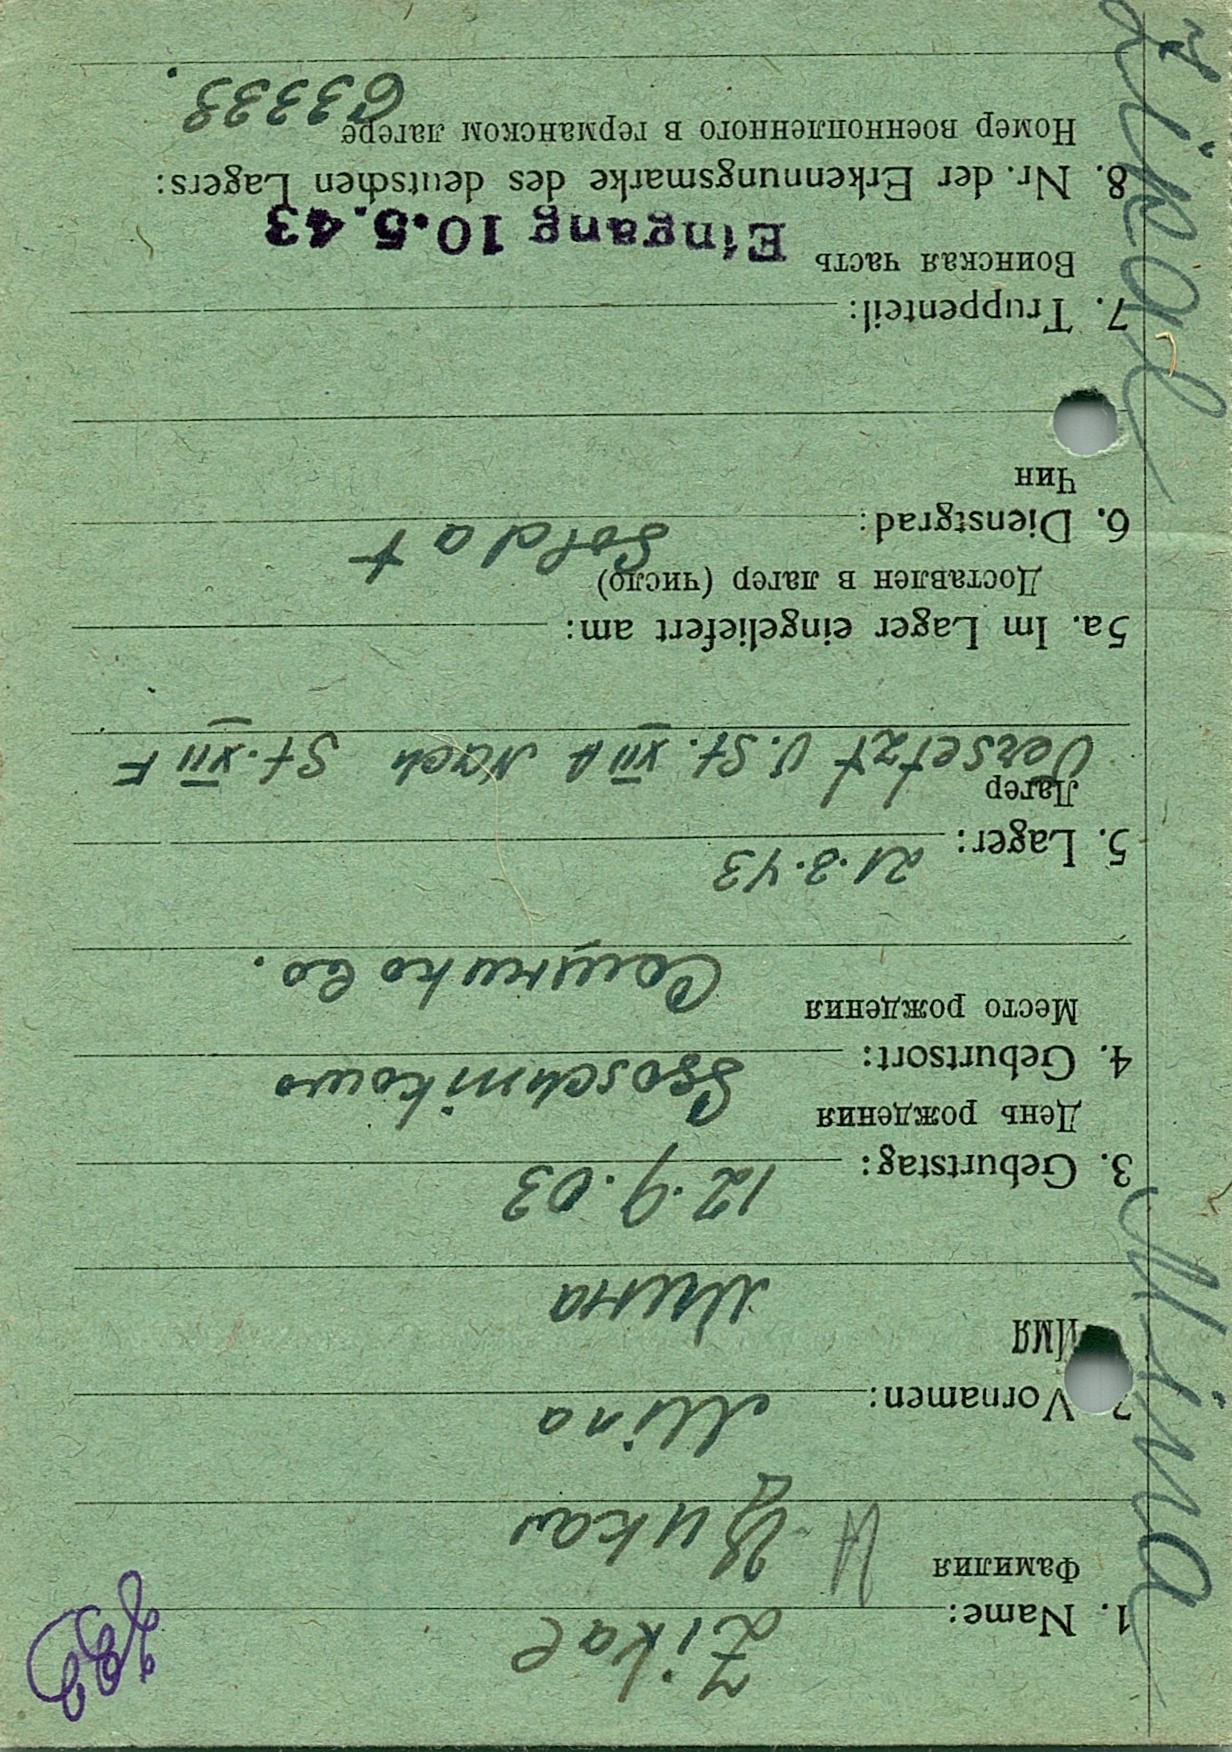 Zikal Mina
1. Name: Zikal
Фамилия Цикал
2. Vornamen: Mina
Имя Мина
3. Geburtstag: 12.9.03
День рождения
4. Geburtsort: Ssoschnikowo
Место рождения Сошниково.
5. Lager: 21.3.43
Лагер
Versetzt v. St. XII A nach St. XII F
5a. Im Lager eingeliefert am:
Доставлен в лагер (число)
6. Dienstgrad: Soldat
Чин
7. Truppenteil:
Воинская часть
Eingang 10.5.43
8. Nr. der Erkennungsmarke des deutschen Lagers:
Номер военнопленного в германском лагере 63333.